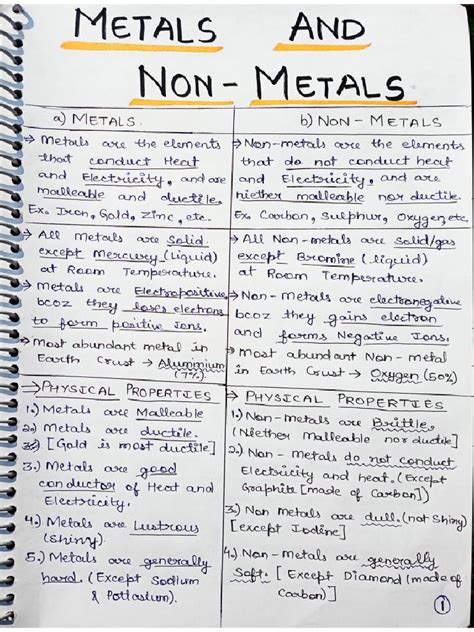 METALS AND
NON-METALS
a) METALS.
→ Metals are the elements
that conduct Heat
and Electricity, and are
malleable and ductile.
Ex. Iron, Gold, Zinc, etc.
→ All metals are Solid
except Mercury (liquid)
at Room Temperature.
→ Metals are Electropositive
bcoz they loses electrons
to form positive Ions.
→ Most abundant metal in
Earth Crust → Aluminium
(7%)
→ PHYSICAL PROPERTIES
1.) Metals are Malleable
2.) Metals are ductile.
[Gold is most ductile]
3.) Metals are good
conductor of Heat and
Electricity.
4.) Metals are Lustrous
(Shiny).
5.) Metals are generally
hard. (Except Sodium
& Pottasium).
b) NON-METALS
→ Non-metals are the elements
that do not conduct heat
and Electricity, and are
niether malleable nor ductile.
Ex. Carbon, Sulphur, Oxygen, etc
→ All Non-metals are Solid/gas
except Bromine (liquid)
at Room Temperature.
→ Non-Metals are electronegative
bcoz they gains electron
and forms Negative Ions.
→ Most abundant Non-metal
in Earth Crust → Oxygen (50%)
→ PHYSICAL PROPERTIES
1.) Non-metals are Brittle.
(Niether Malleable nor ductile]
2.) Non-metals do not conduct
Electricity and heat. (Except
Graphite [made of Carbon])
3.) Non metals are dull. (not Shiny)
[except Iodine]
4.) Non-metals are generally
Soft. [Except Diamond (made of
Carbon)]
1